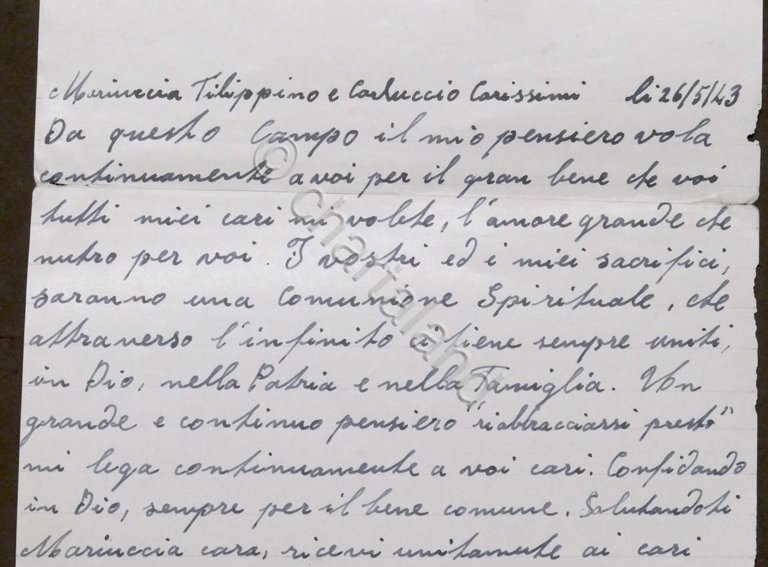 Mariuccia Filippino e Carluccio Carissimi li 26/5/43
Da questo Campo il mio pensiero vola
continuamente a voi per il gran bene che voi
tutti miei cari mi volete, l'amore grande che
nutro per voi. I vostri ed i miei sacrifici,
saranno una Comunione Spirituale, che
attraverso l'infinito ci tiene sempre uniti,
in Dio, nella Patria e nella Famiglia. Un
grande e continuo pensiero "riabbracciarsi presto"
mi lega continuamente a voi cari. Confidando
in Dio, sempre per il bene comune. Salutandoti
Mariuccia cara, ricevi unitamente ai cari
© chartaland